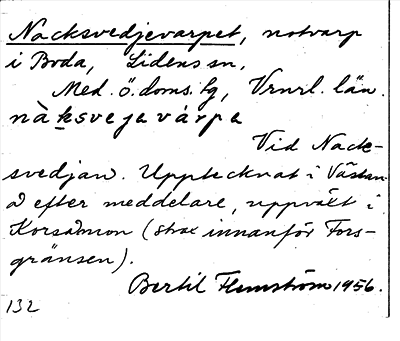 Nacksvedjevarpet, notvarp
i Boda, Lidens sn,
Med. ö. doms. fg, Vrnrl. län.
nàksvejavárpa
Vid Nack-
svedjan. Upptecknat i Västan-
å efter meddelare, uppväxt i
Korsåmon (strax innanför Fors-
gränsen).
Bertil Flemström 1956.
132